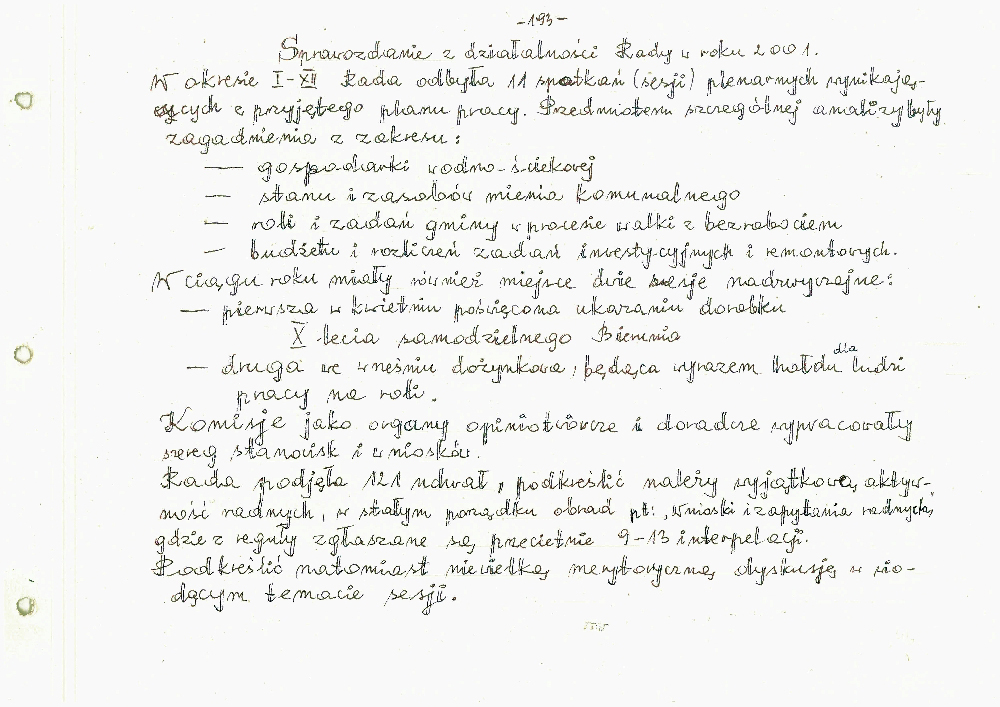 -193-
Sprawozdanie z działalności Rady w roku 2001.
W okresie I-XII Rada odbyła 11 spotkań (sesji) plenarnych wynikają-
cych z przyjętego planu pracy. Przedmiotem szczególnej analizy były
zagadnienia z zakresu:
— gospodarki wodno-ściekowej
— stanu i zasobów mienia komunalnego
— roli i zadań gminy w procesie walki z bezrobociem
— budżetu i rozliczeń zadań inwestycyjnych i remontowych.
W ciągu roku miały również miejsce dwie sesje nadzwyczajne:
— pierwsza w kwietniu poświęcona ukazaniu dorobku
X-lecia samodzielnego
— druga we wneśniu dożynkowa, będąca wyrazem hołdu dla ludzi
pracy na roli.
Komisje jako organy opiniotwórcze i doradcze wypracowały
szereg stanowisk i wniosków.
Rada podjęła 121 uchwał, podkreślić należy wyjątkową aktyw-
ność radnych, w stałym porządku obrad pt: „wnioski i zapytania radnych"
gdzie z reguły zgłaszane są przecietnie 9-13 interpelacji.
Podkreślić natomiast niewielką merytoryczną dyskusję w wio-
dącym temacie sesji.